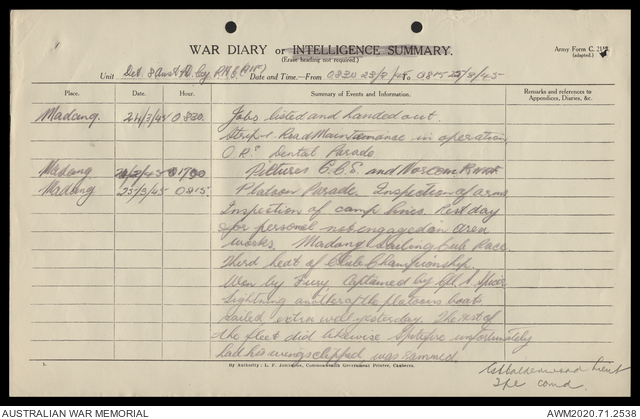 WAR DIARY or INTELLIGENCE SUMMARY.
(Erase heading not required.)
Army Form C. 2118.
(adapted.)
Unit Det. 8 Aust Fd. Coy R.A.E. (AIF) Date and Time.—From 0830 23/3/45 to 0815 25/3/45
Place. Date. Hour. Summary of Events and Information. Remarks and references to Appendices, Diaries, &c.
Madang. 24/3/45 0830. Jobs listed and handed out.
Strip & Road Maintenance in operation
O.R.s Dental Parade
Madang 24/3/45 01700 Pictures C.C.S. and
Madang 25/3/45 0815. Platoon Parade. Inspection of arms
Inspection of camp lines. Rest day
for personnel not engaged on area
works. Madang Sailing Club Race
Third heat of Club Championship.
Won by Fury. Captained by Cpl. A Spicer
Lightning another of the platoons boats
sailed extra well yesterday. The rest of
the fleet did likewise Spitfire unfortunately
had his wings clipped was rammed.
Lieut
comd.
1.
By Authority: L. F. Johnston, Commonwealth Government Printer, Canberra.
AUSTRALIAN WAR MEMORIAL
AWM2020.71.2538